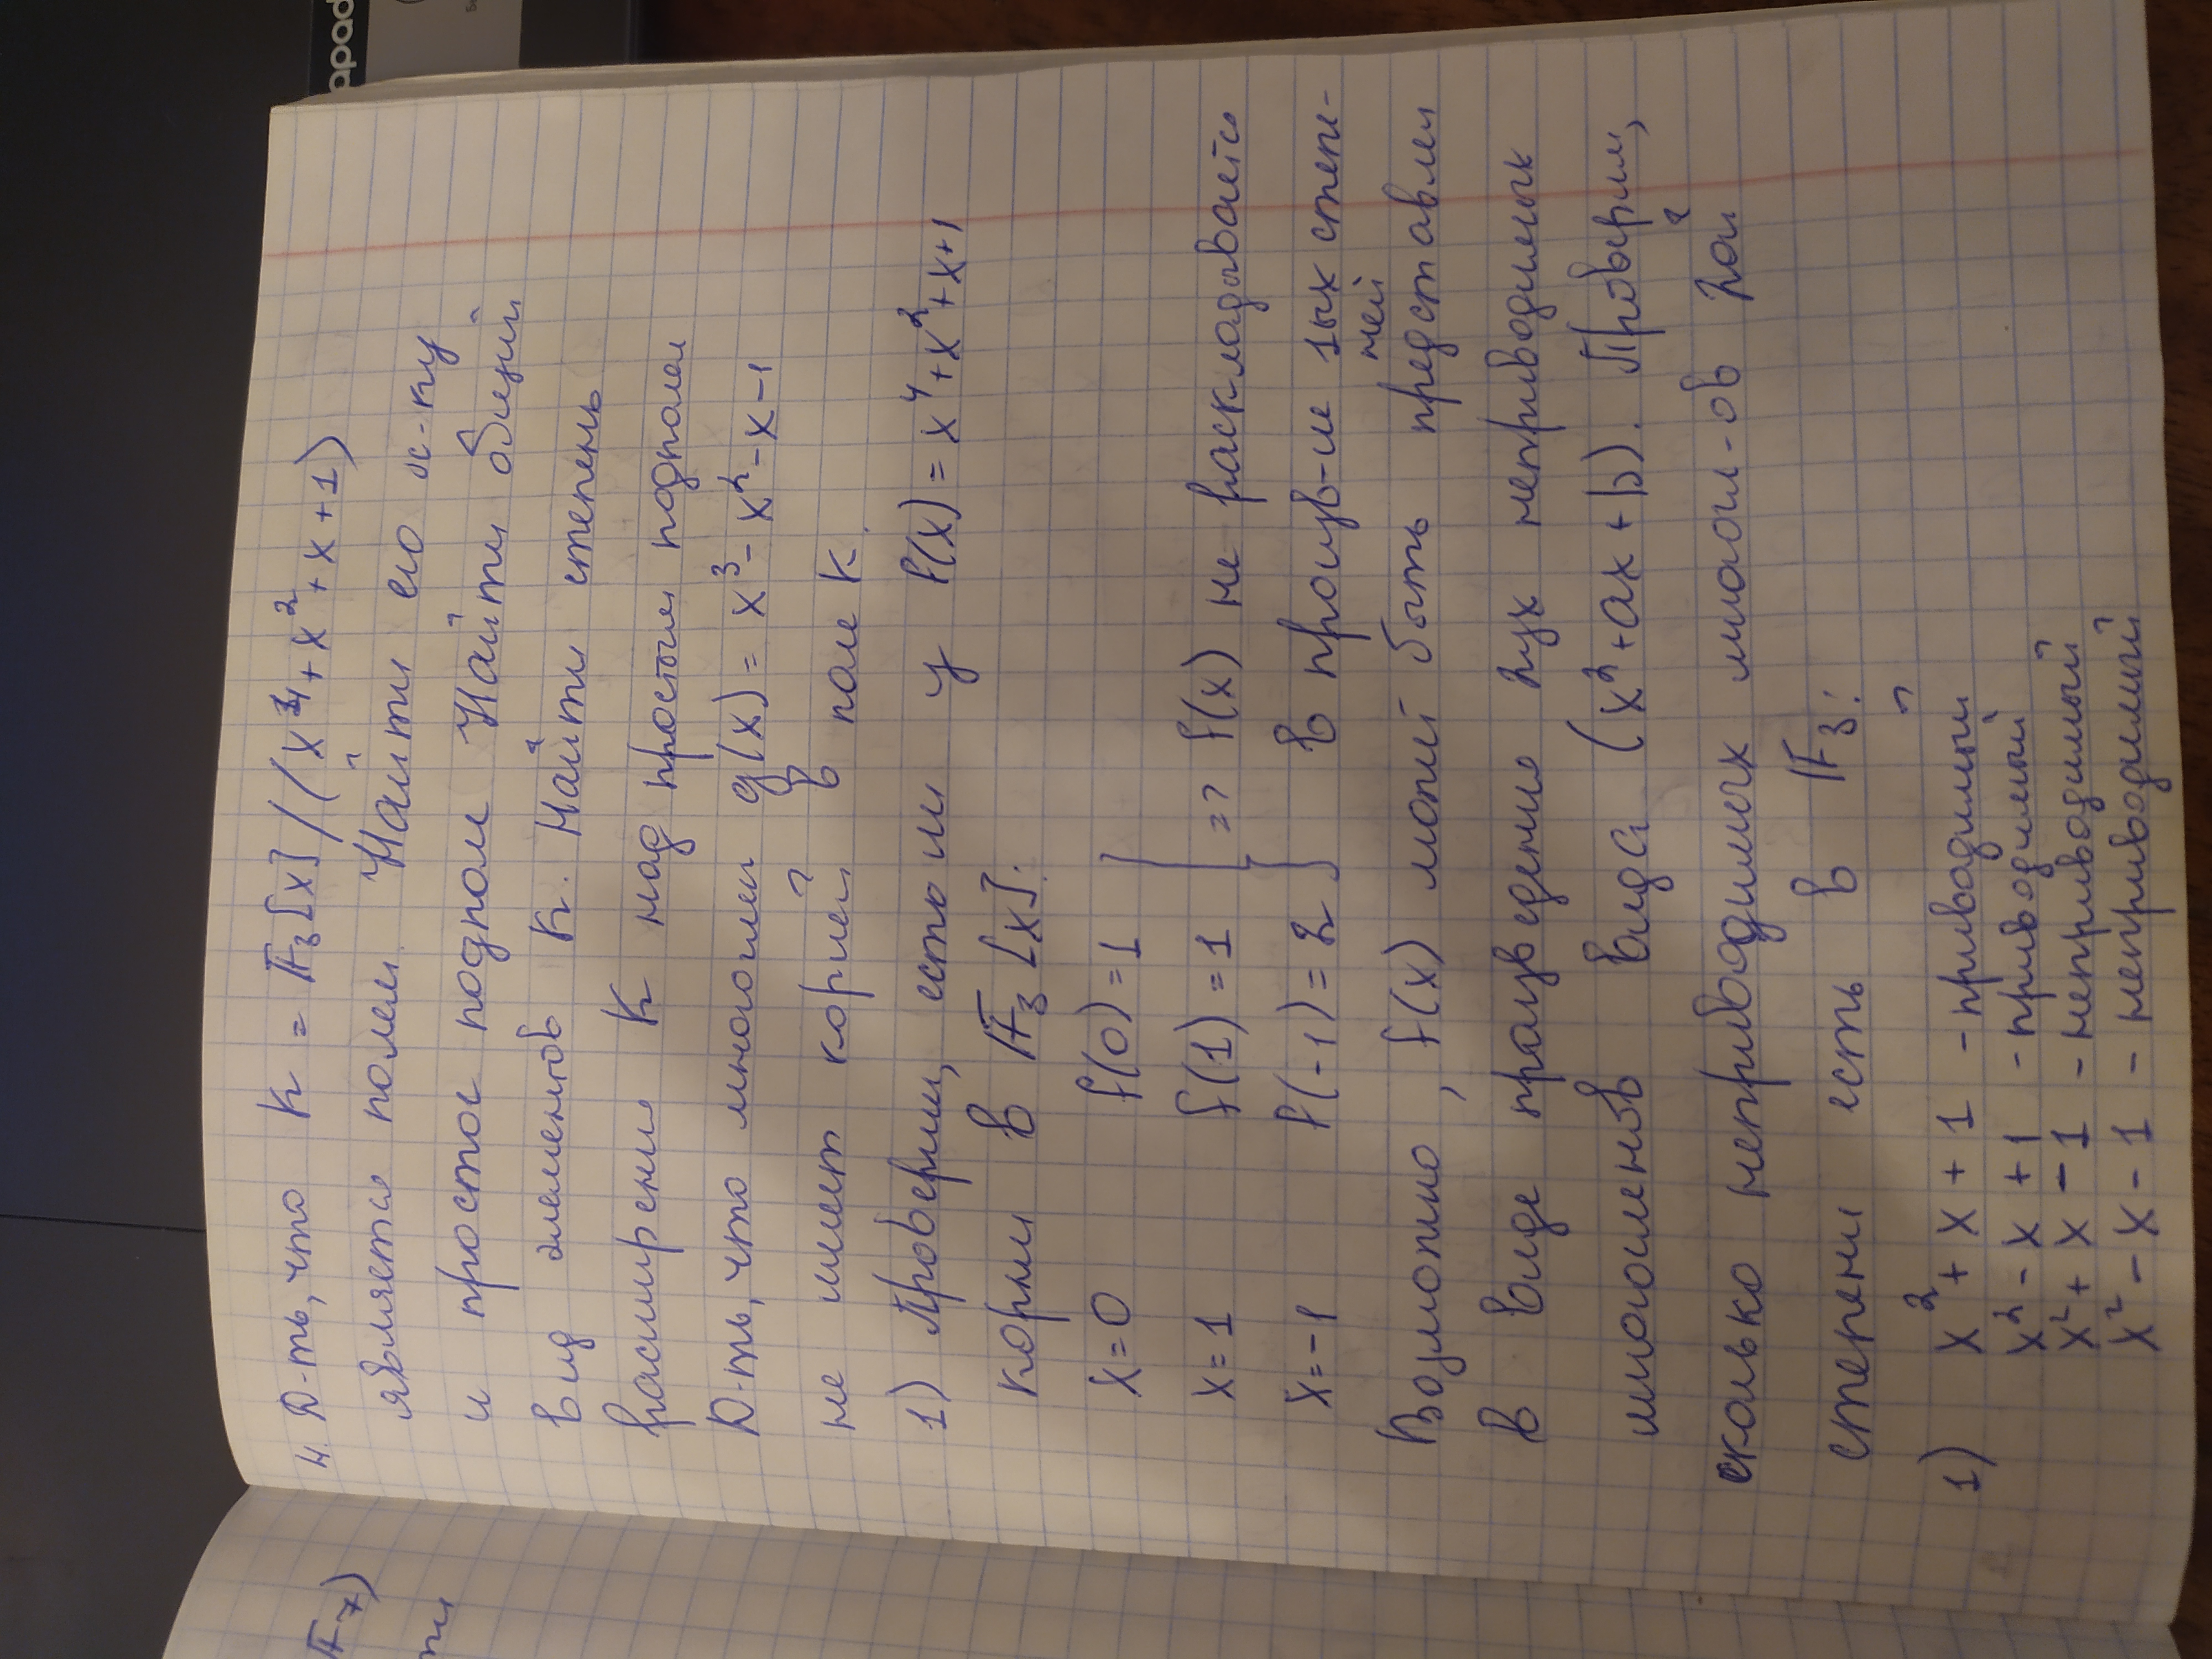 4. Д-ть, что K = F₃[x]/(x⁴+x²+x+1)
является полем. Найти его х-ку
и простое подполе Найти общий
вид элементов K. Найти степень
расширения K над простым подполем
Д-ть, что многочлен g(x) = x³-x²-x-1
не имеет корней в поле K.
1) Проверим, есть ли у f(x) = x⁴+x²+x+1
корни в F₃[x]:
x=0 f(0)=1
x=1 f(1)=1 => f(x) не раскладывается
x=-1 f(-1)=2 в произв-ие 1ых степе-
ней
Возможно, f(x) может быть представлен
в виде произведения 2ух неприводимых
многочленов вида (x²+ax+b). Проверим,
сколько неприводимых многочл-ов 2ой
степени есть в F₃:
1) x²+x+1 - приводимый
x²-x+1 - приводимый
x²+x-1 - неприводимый
x²-x-1 - неприводимый
F₇)
apad